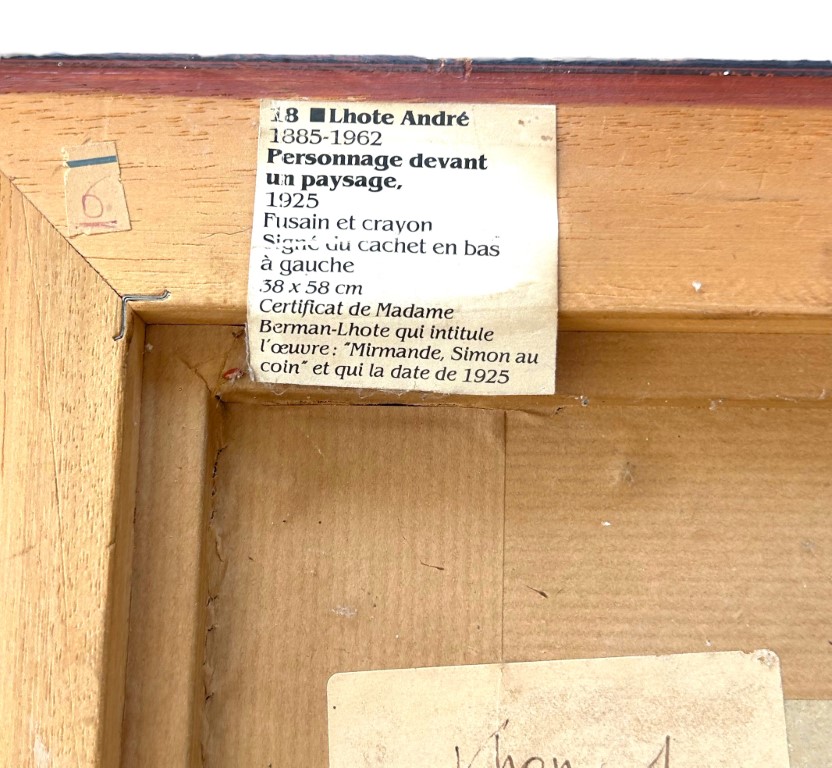 18 ■ Lhote André
1885-1962
Personnage devant
un paysage,
1925
Fusain et crayon
Signé du cachet en bas
à gauche
38 x 58 cm
Certificat de Madame
Berman-Lhote qui intitule
l'œuvre : "Mirmande, Simon au
coin" et qui la date de 1925
6